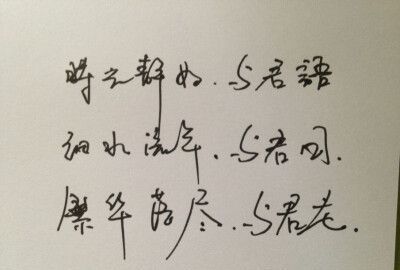 时光静好.与君語
细水流年.与君同.
繁华落尽.与君老.